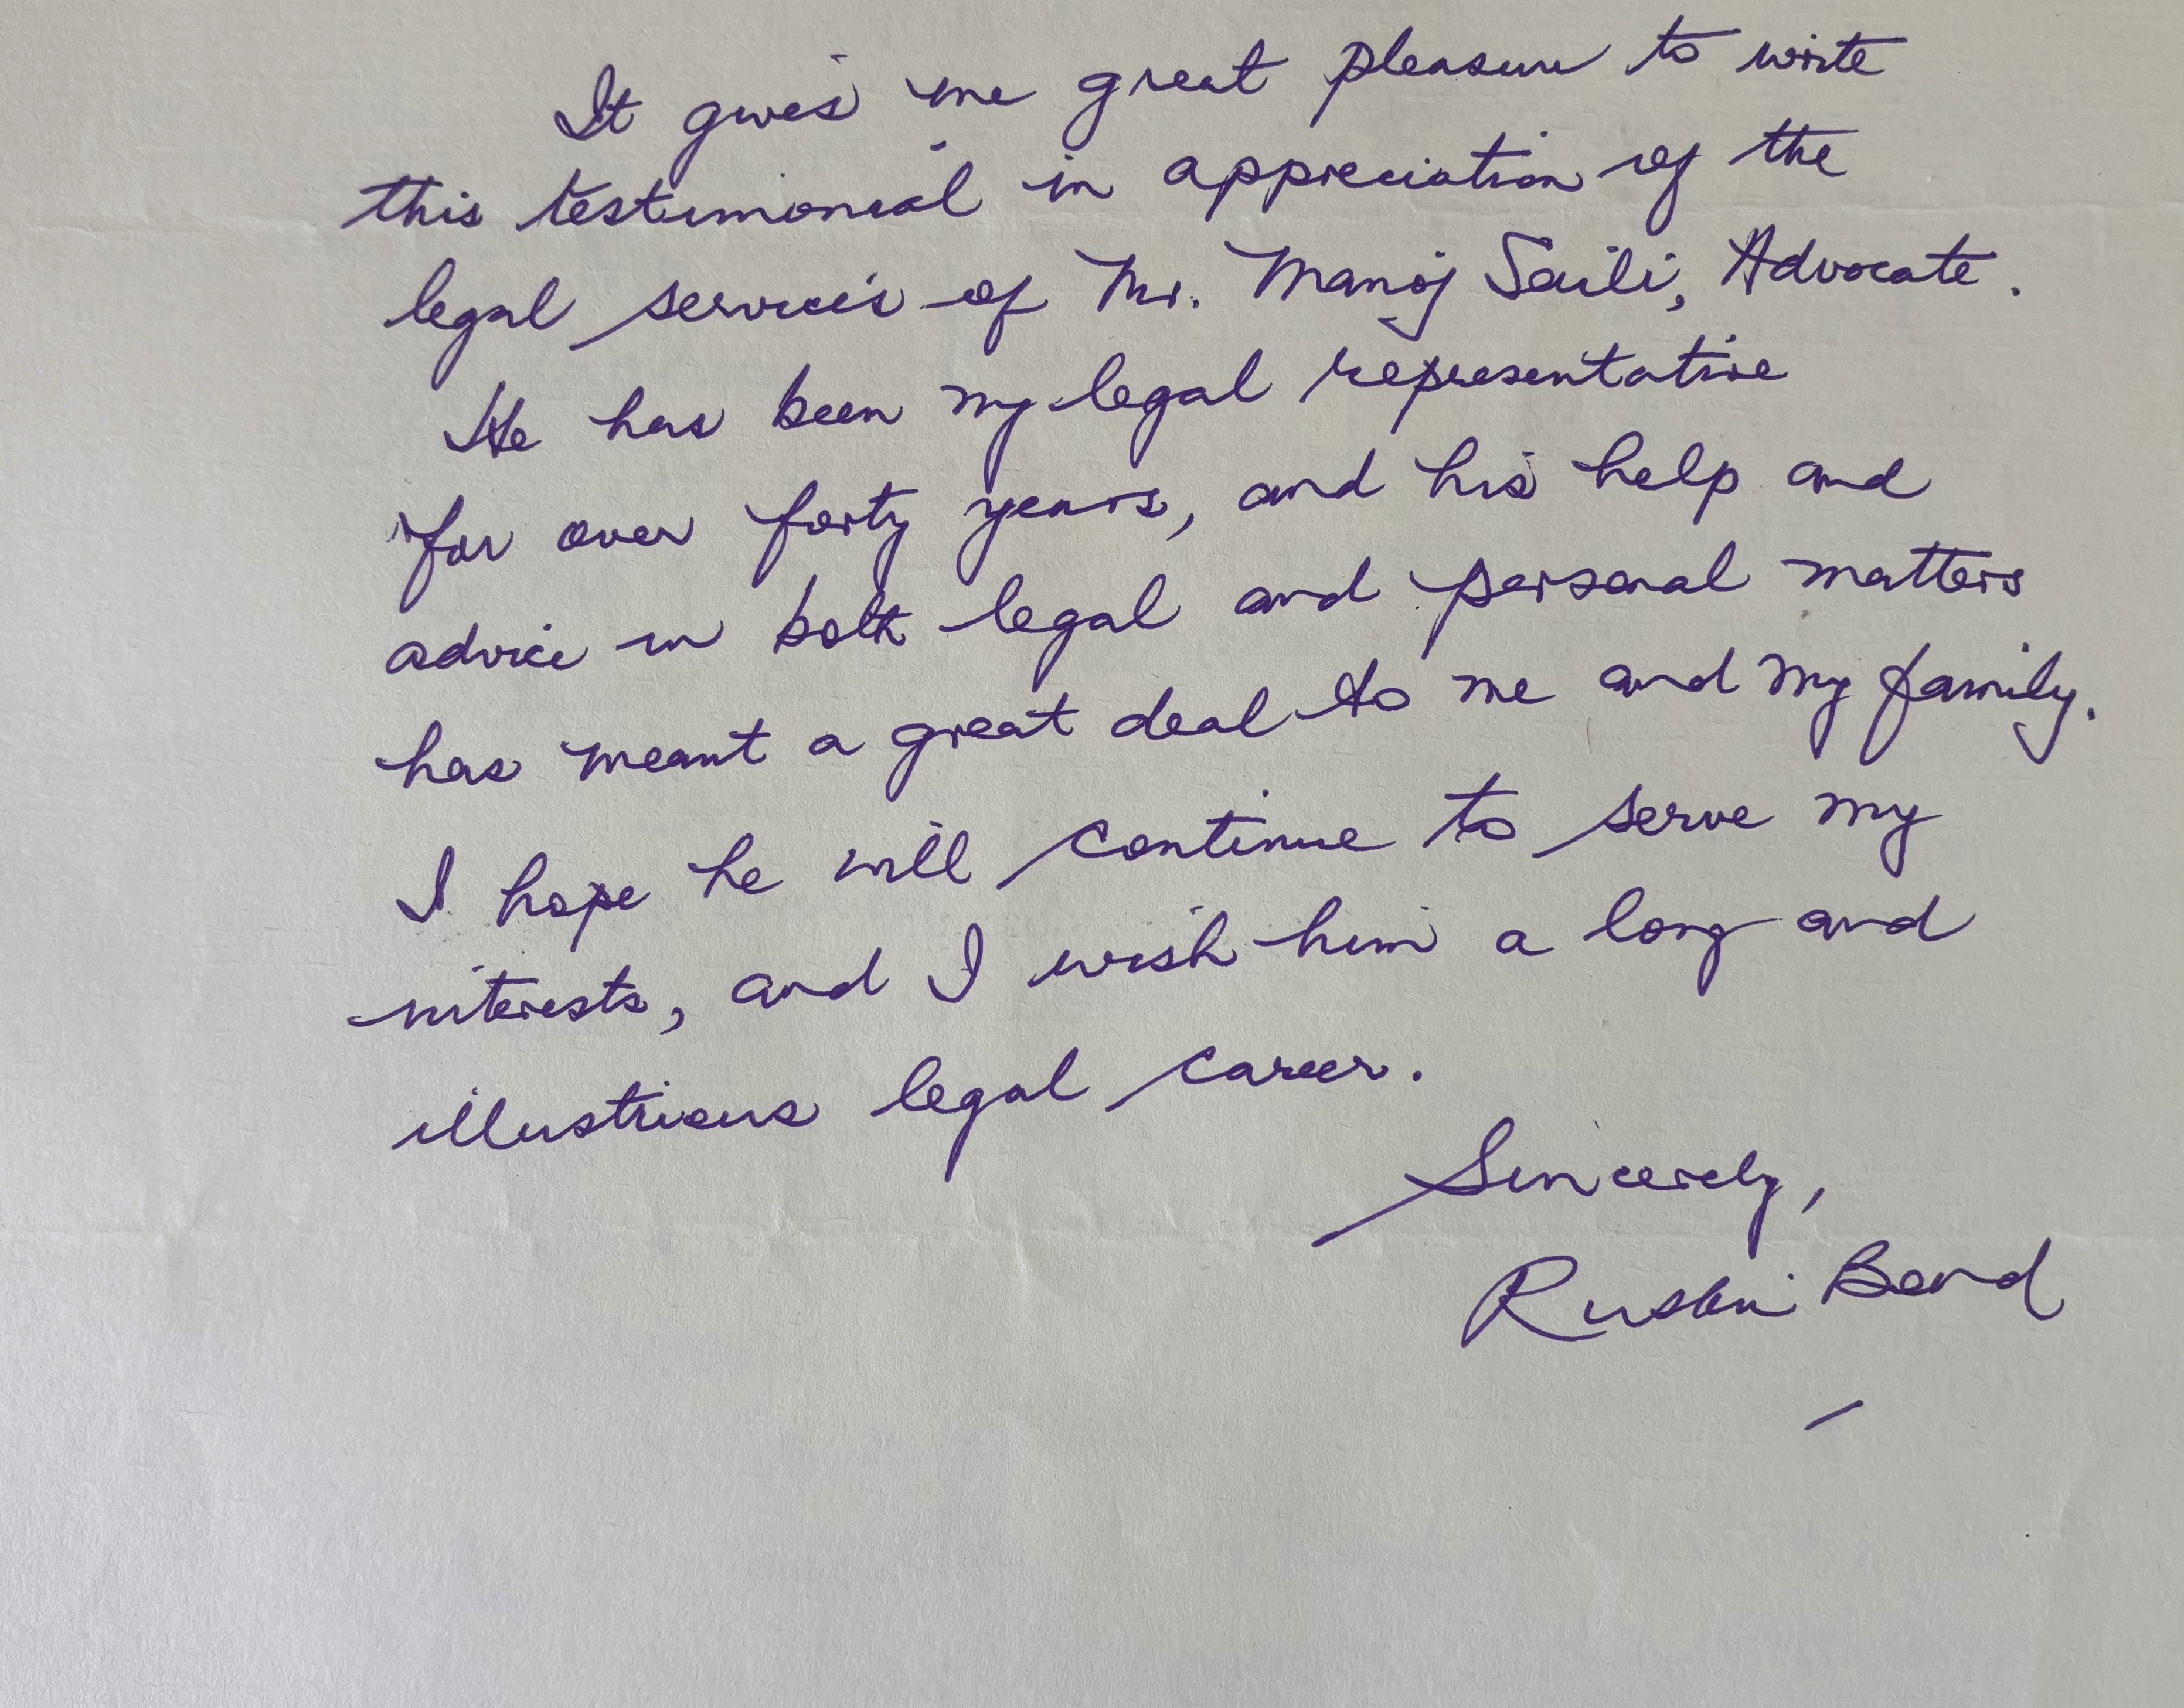 It gives me great pleasure to write
this testimonial in appreciation of the
legal services of Mr. Manoj Saili, Advocate.
He has been my legal representative
for over forty years, and his help and
advice in both legal and personal matters
has meant a great deal to me and my family.
I hope he will continue to serve my
interests, and I wish him a long and
illustrious legal career.
Sincerely,
Ruskin Bond